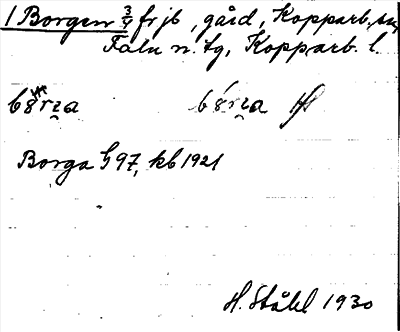 1 Borgen 3/4 fr jb, gård, Kopparb. sn,
Falu n. tg, Kopparb. l.
Borga G 97, kb 1921
H. Ståhl 1930